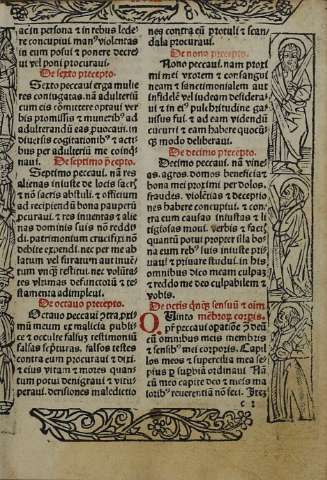 ac in persona & in rebus lede
re concupiui man⁹ violentas
in eum posui & ponere decre
ui vel poni procuraui.
De sexto precepto.
Sexto peccaui erga mulie
res coniugatas. nā adulteriū
cum eis cōmittere optaui ver
bis promissis & munerib⁹ ad
adulterandū eas puocaui. in
diuersis cogitationib⁹ & acti
bus per adulteriū me coinq̄
naui.
De septimo p̄cepto.
Septimo peccaui. nā res
alienas iniuste de locis sacris
& nō sacris abstuli. & officium
ad recipiendū bona pauperū
procuraui. & res inuentas & alie
nas dominis suis nō reddi
di. patrimonium crucifixi nō
debite expendi. nec per me ab
latum vel furatum aut inuē
tum vnq̄ȝ restitui. nec volūta
tes vltimas defunctorū & te
stamenta adimpleui.
De octauo precepto.
Octauo peccaui ꝯtra pxi
mū meum ex malicia public
ce & occulte falsuȝ testimoniū
falsas scpturas. falsas testes
contra eum procuraui & dixi
& eius vitam & mores quan
tum potui denigraui & vitu
peraui. dersiones maledicti
nes contra eū protuli & scan
dala procuraui.
De nono precepto.
Nono peccaui. nam proxi
mi mei vxorem & consangui
neam & sanctimonialem aut
infidelē vel iudeam desideraui
ui & in ei⁹ pulchritudine ga
uisus fui. & ad eam videndū
cucurri & eam habere quocūq̄ȝ
modo deliberaui.
De decimo precepto.
Decimo peccaui. nā vine
as. agros. domos beneficia & bo
na mei proximi per dolos.
fraudes. violētias & deceptio
nes habere concupiui. & con
tra eum causas iniustas & li
tigiosas moui. verbis & factis
quantū potui propter illa bo
na cum reb⁹ suis iniuste pri
uaui & priuare studui. in his
omnibus dico meam culpaȝ
& reddo me deo culpabilem &
vobis.
De petis quinqȝ sensuū & oim
membroȝ corpis.
Quinto
pt̄ peccaui opatiōe p̄ deū
cū omnibus meis membris
& sensib⁹ mei corporis. Capil
los meos & supercilia mea se
pius p supbiā ordinaui. Nā
cū meo capite deo & meis ma
iorib⁹ reuerentiā nō feci. Itē
c i